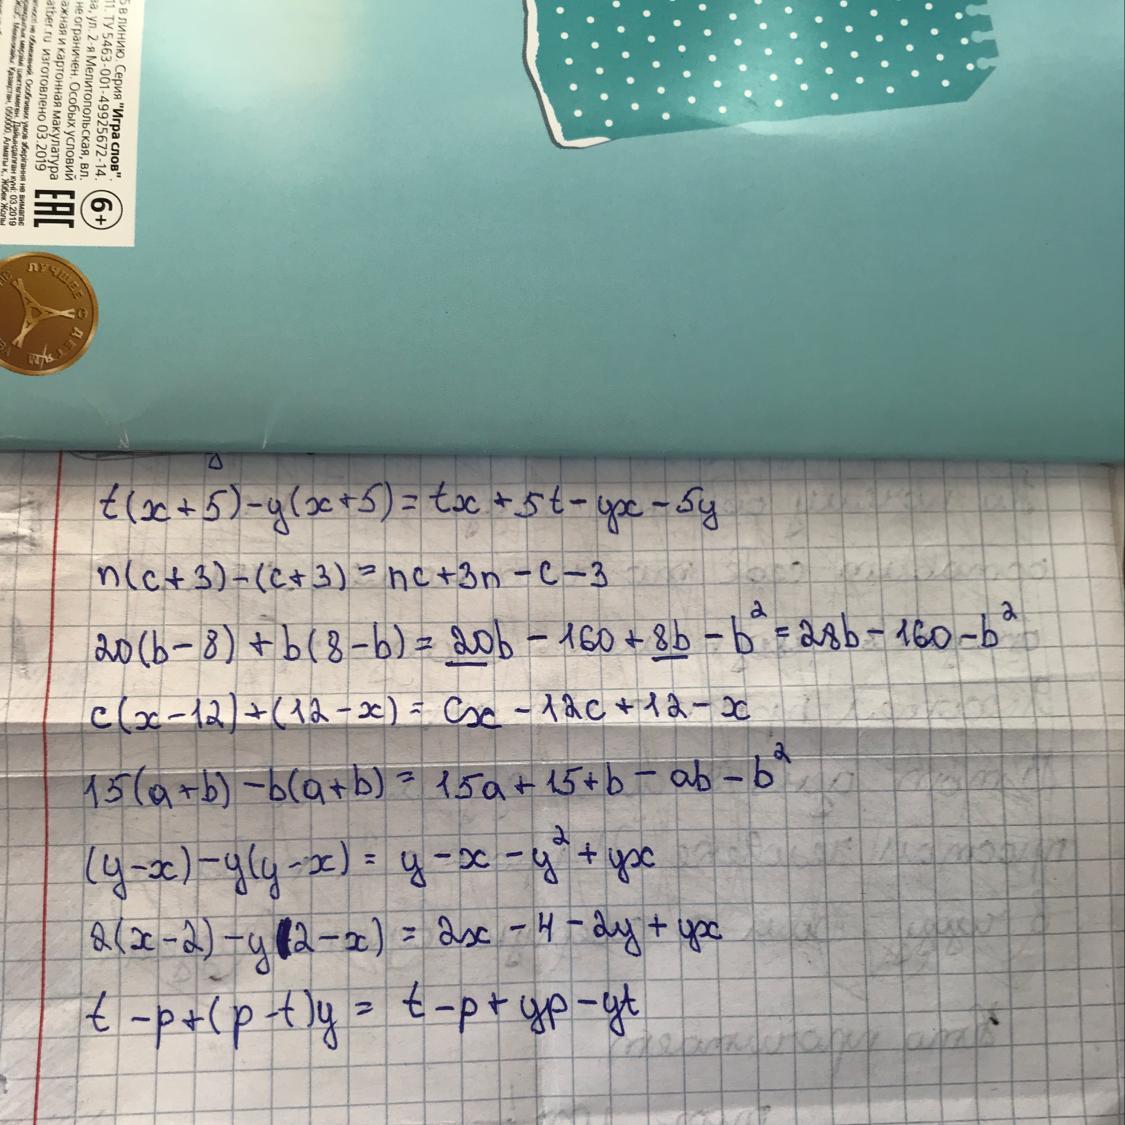 5 в линию. Серия "Игра слов".
11. ТУ 5463-001-49925672-14.
ва, ул. 2-я Мелитопольская, вл.
ажная и картонная макулатура
не ограничен. Особых условий
atber.ru изготовлено 03.2019
6+
ЕАС
ЛУЧШЕЕ
ДЕТЯМ
t(x+5)-y(x+5)= tx+5t-yx-5y
n(c+3)-(c+3)= nc+3n-c-3
20(b-8)+b(8-b)= 20b-160+8b-b²=28b-160-b²
c(x-12)+(12-x)= cx-12c+12-x
15(a+b)-b(a+b)= 15a+15+b-ab-b²
(y-x)-y(y-x)= y-x-y²+yx
2(x-2)-y(2-x)= 2x-4-2y+yx
t-p+(p-t)y= t-p+yp-yt